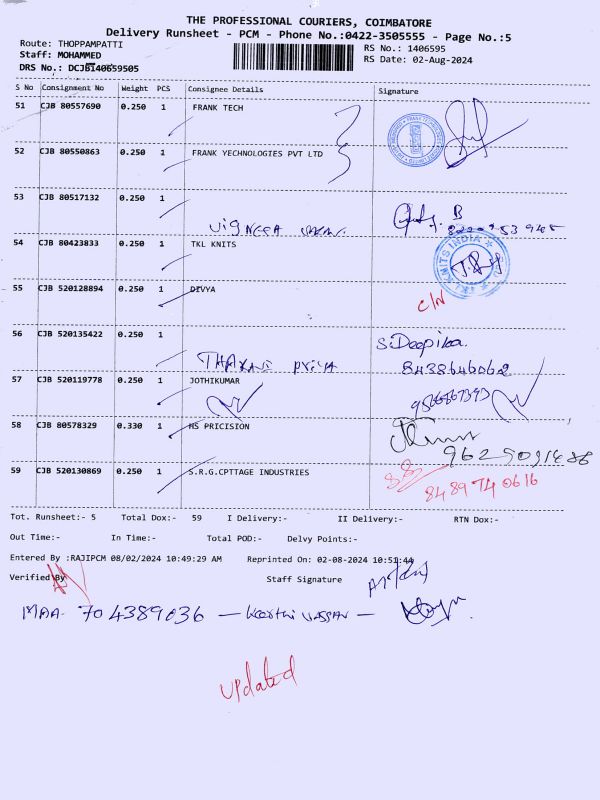 THE PROFESSIONAL COURIERS, COIMBATORE
Delivery Runsheet - PCM - Phone No.:0422-3505555 - Page No.:5
Route: THOPPAMPATTI
RS No.: 1406595
Staff: MOHAMMED
RS Date: 02-Aug-2024
DRS No.: DCJB140659505
S No Consignment No Weight PCS Consignee Details Signature
51 CJB 80557690 0.250 1 FRANK TECH
52 CJB 80550863 0.250 1 FRANK YECHNOLOGIES PVT LTD
53 CJB 80517132 0.250 1
54 CJB 80423833 0.250 1 TKL KNITS
KNITS INDIA
55 CJB 520128894 0.250 1 DIVYA
C/N
56 CJB 520135422 0.250 1
S.Deepika.
8438646062
57 CJB 520119778 0.250 1 JOTHIKUMAR
58 CJB 80578329 0.330 1 HS PRICISION
9629091486
59 CJB 520130869 0.250 1 S.R.G.CPTTAGE INDUSTRIES
8489740616
Tot. Runsheet:- 5 Total Dox:- 59 I Delivery:- II Delivery:- RTN Dox:-
Out Time:- In Time:- Total POD:- Delvy Points:-
Entered By :RAJIPCM 08/02/2024 10:49:29 AM Reprinted On: 02-08-2024 10:51:44
Verified By Staff Signature
MAA- 704389636 —
updated